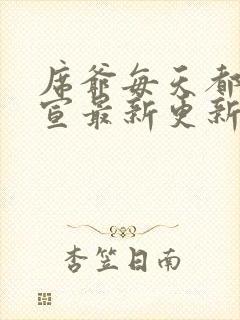 席爷每天都
宣最新更新
杏笠日南